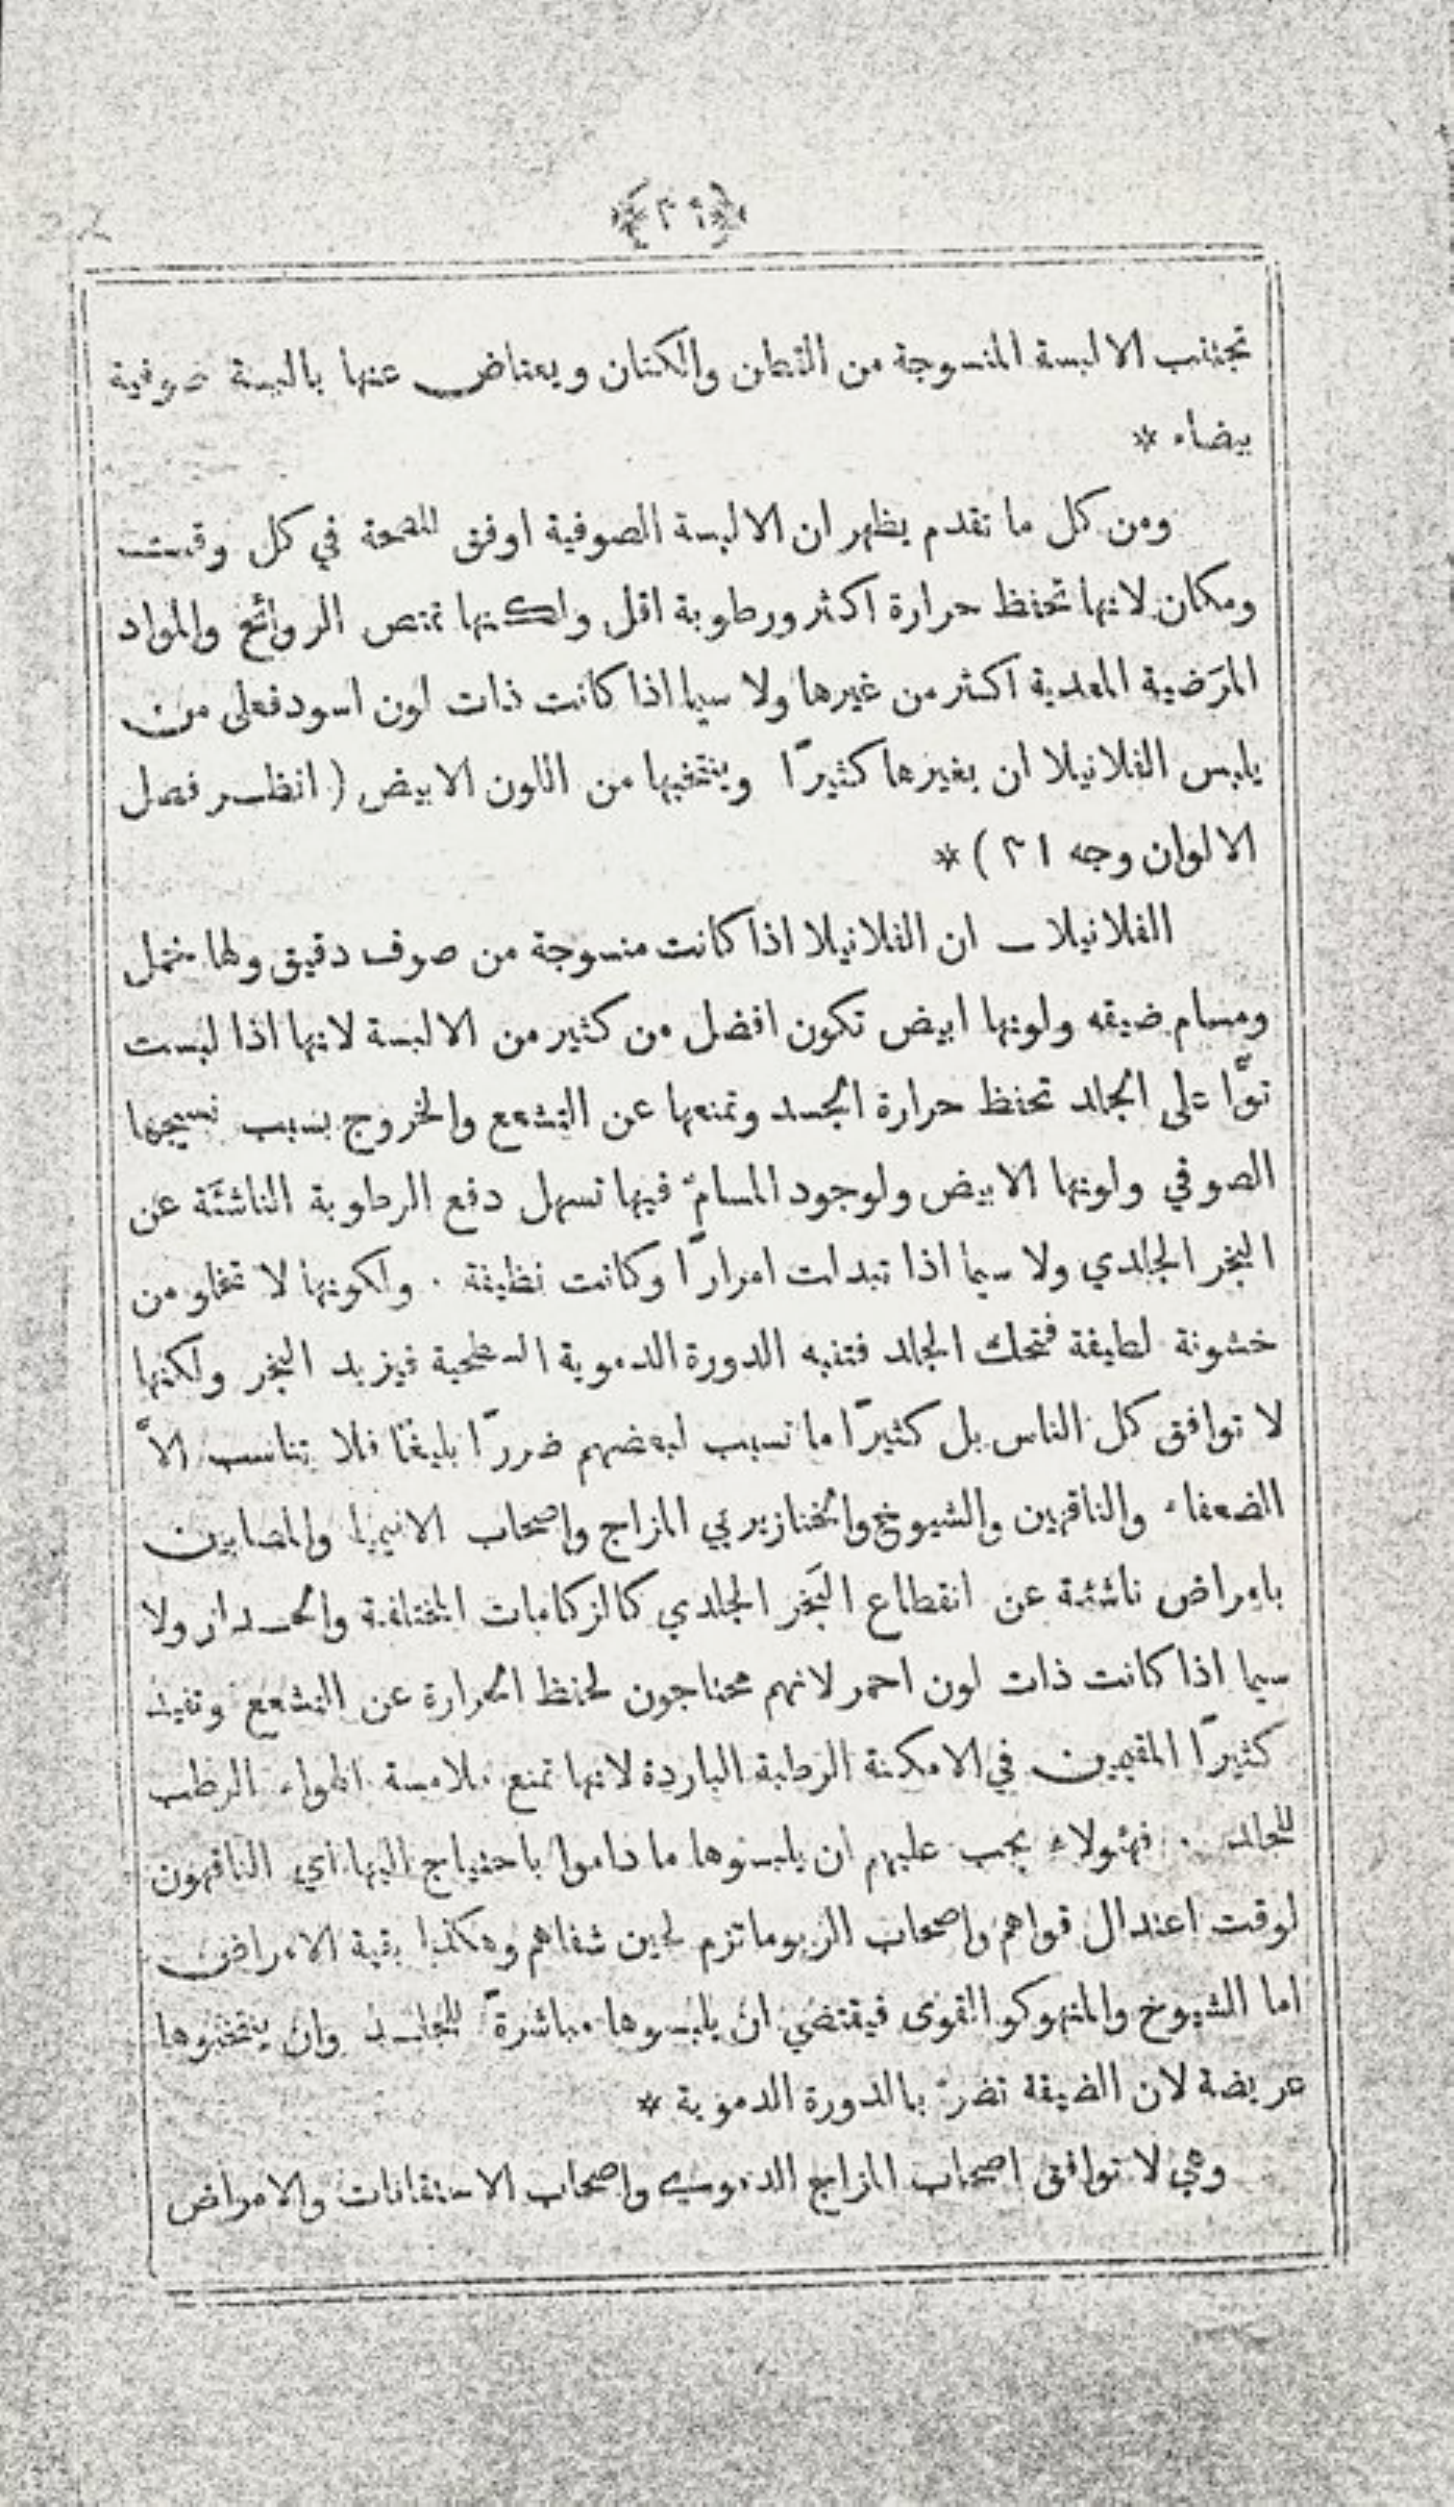 تجتنب الالبسة المنسوجة من القطن والكتان ويعتاض عنها بالبسة صوفية
بيضاء *
ومن كل ما تقدم يظهر ان الالبسة الصوفية اوفق للصحة في كل وقت
ومكان لانها تحفظ حرارة اكثر ورطوبة اقل ولكنها تمتص الروائح والمواد
المرَضية المعدية اكثر من غيرها ولا سيما اذا كانت ذات لون اسود فعلى من
يلبس الفلانيلا ان يغيرها كثيرًا وينتخبها من اللون الابيض ( انظر فصل
الالوان وجه ٢١ ) *
الفلانيلا ـ ان الفلانيلا اذا كانت منسوجة من صوف دقيق ولها خمل
ومسام ضيقه ولونها ابيض تكون افضل من كثير من الالبسة لانها اذا لبست
توًّا على الجلد تحفظ حرارة الجسد وتمنعها عن التشعع والخروج بسبب نسيجها
الصوفي ولونها الابيض ولوجود المسامّ فيها تسهل دفع الرطوبة الناشئة عن
البخر الجلدي ولا سيما اذا تبدلت امرارًا وكانت نظيفة . ولكونها لا تخلو من
خشونة لطيفة فتحك الجلد فتنبه الدورة الدموية السطحية فيزيد البخر ولكنها
لا توافق كل الناس بل كثيرًا ما تسبب لبعضهم ضررًا بليغًا فلا تناسب الاَّ
الضعفاء والناقهين والشيوخ والخنازيري المزاج واصحاب الانيميا والمصابين
بامراض ناشئة عن انقطاع البَخر الجلدي كالزكامات المختلفة والحدار ولا
سيما اذا كانت ذات لون احمر لانهم محتاجون لحفظ الحرارة عن التشعع وتفيد
كثيرًا المقيمين في الامكنة الرطبة الباردة لانها تمنع ملامسة الهواء الرطب
للجلد . فهؤلاء يجب عليهم ان يلبسوها ما داموا باحتياج اليها اي الناقهون
لوقت اعتدال قواهم واصحاب الريوماتزم لحين شفاهم وهكذا بقية الامراض
اما الشيوخ والمنهوكو القوى فيقتضي ان يلبسوها مباشرةً للجلد وان ينتخبوها
عريضة لان الضيقة تضرّ بالدورة الدموية *
وهي لا توافق اصحاب المزاج الدموي واصحاب الاحتقانات والامراض